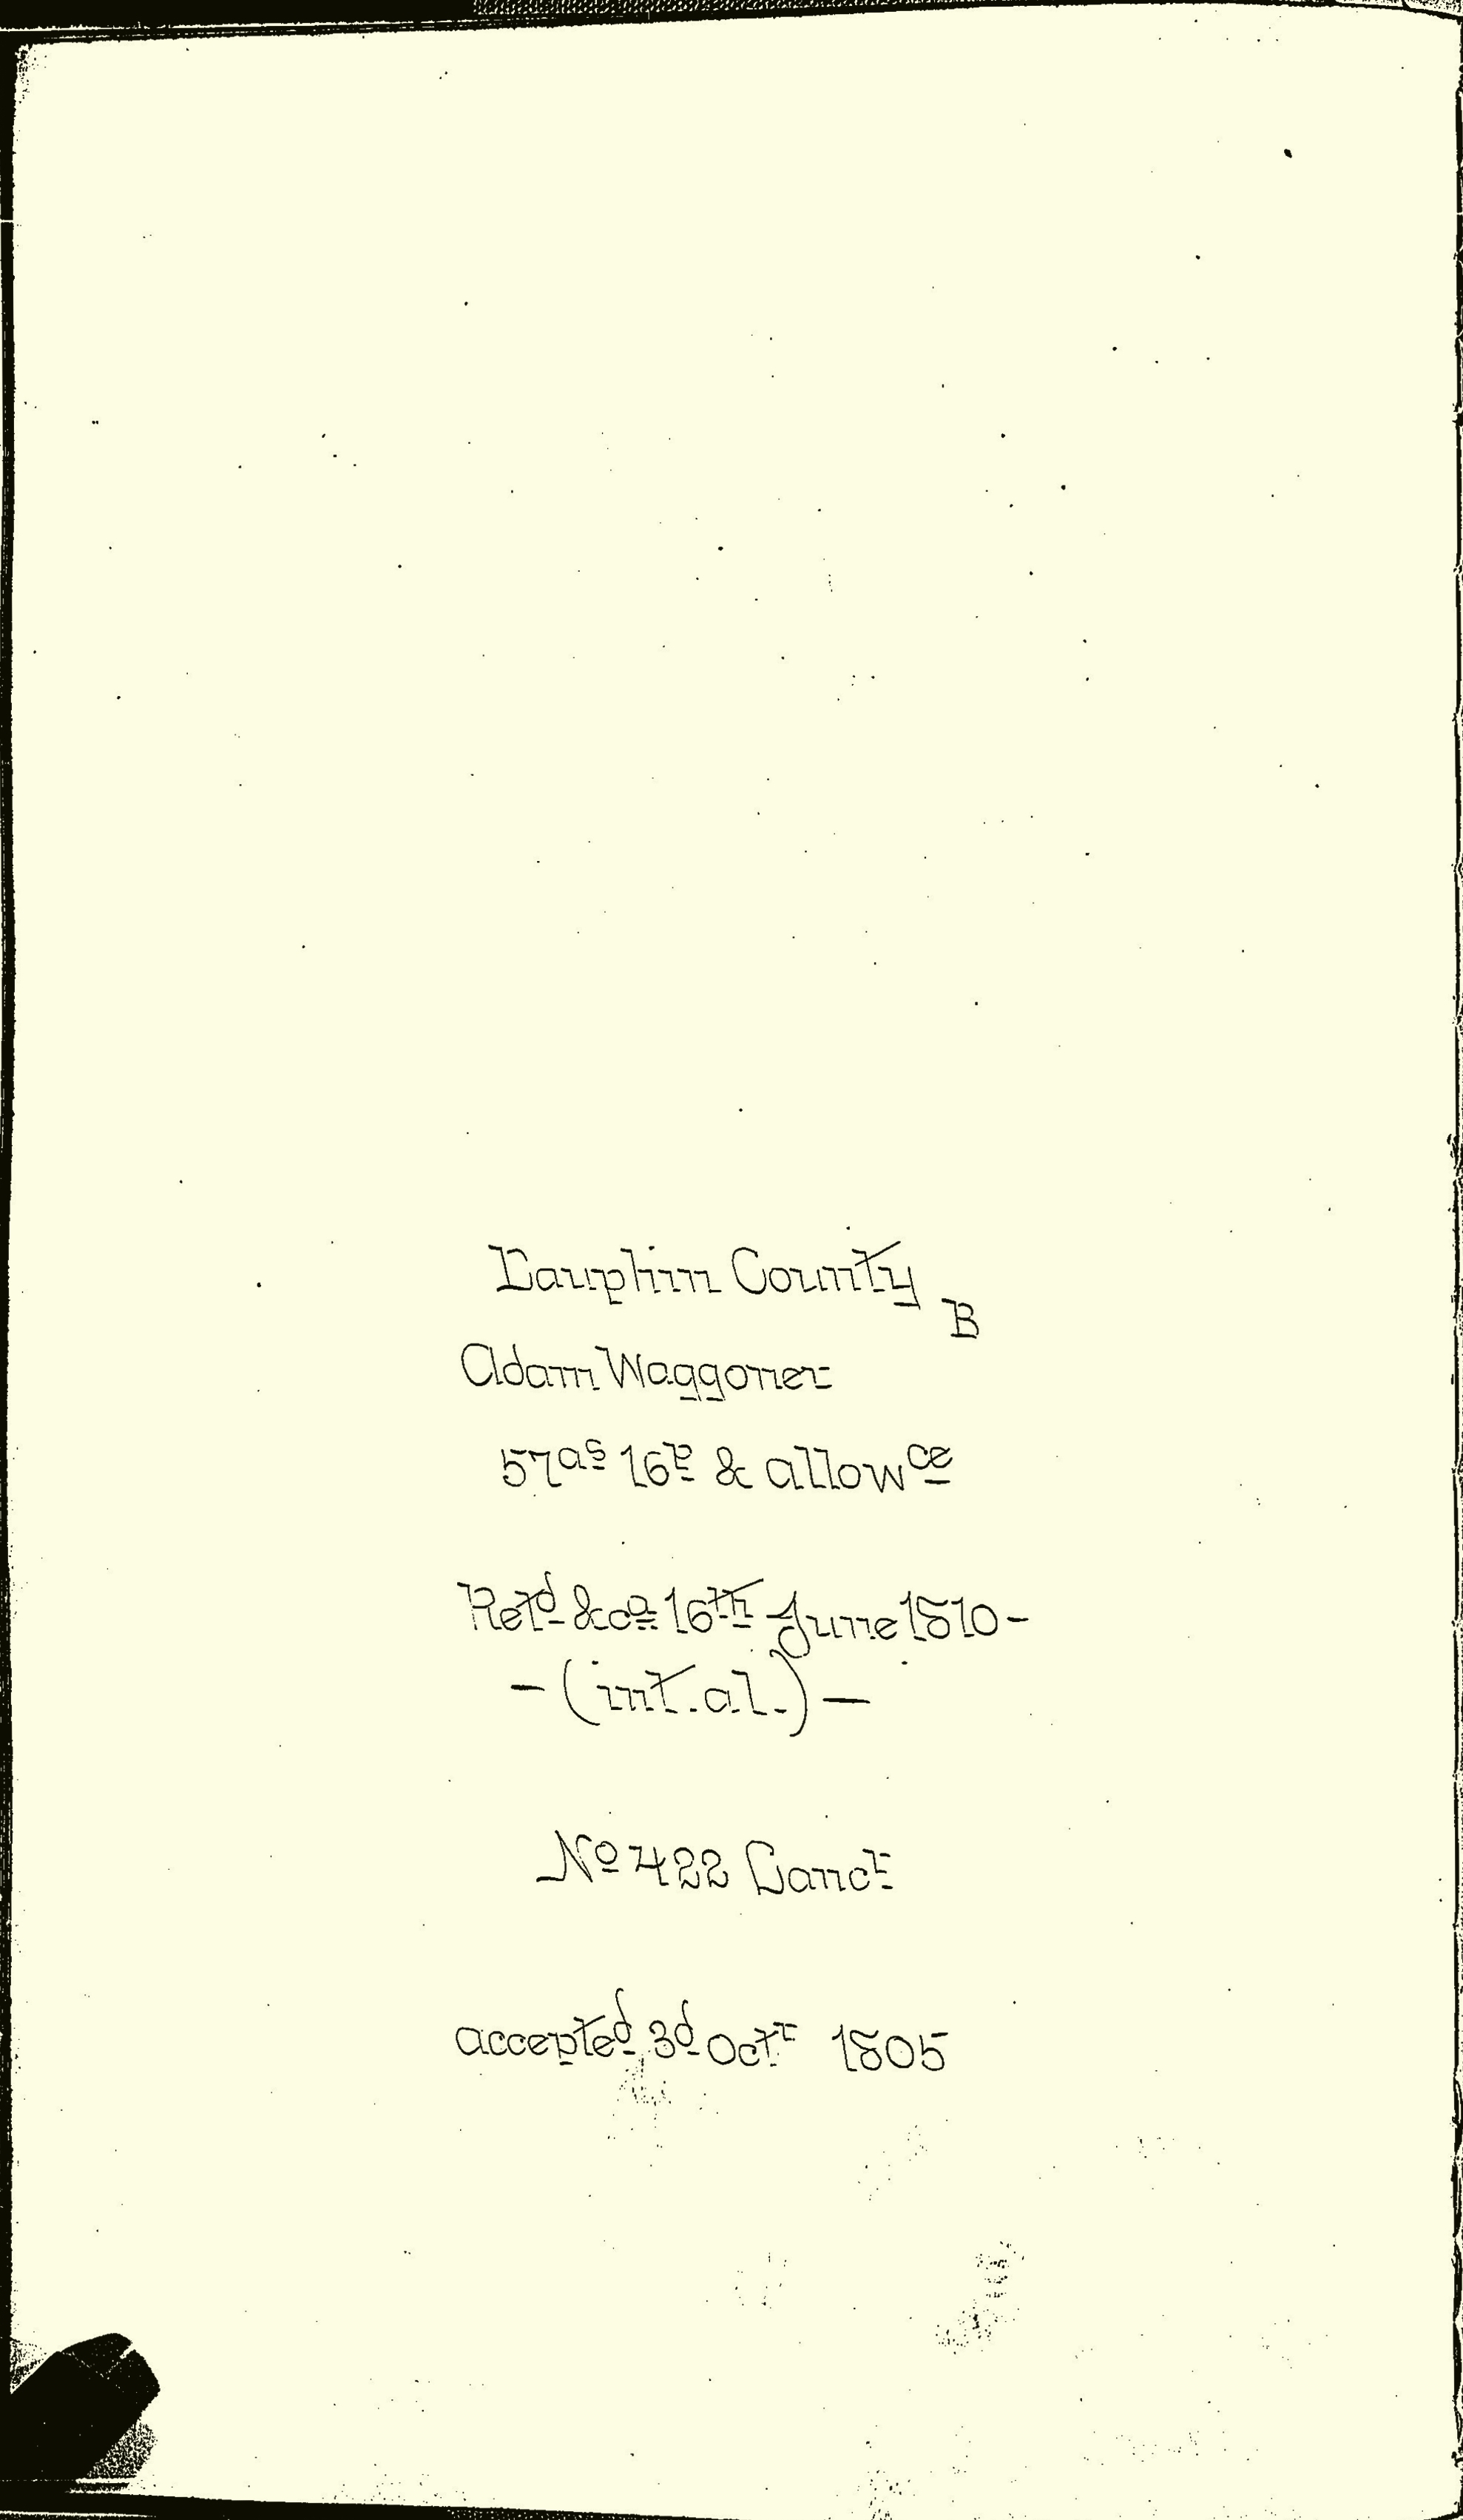 Dauphin County
B
Adam Waggoner
57as 16p & allowce
Retd &ca 16th June 1810-
- (int. al.) —
No 422 Lancr
accepted 3d Octr 1805